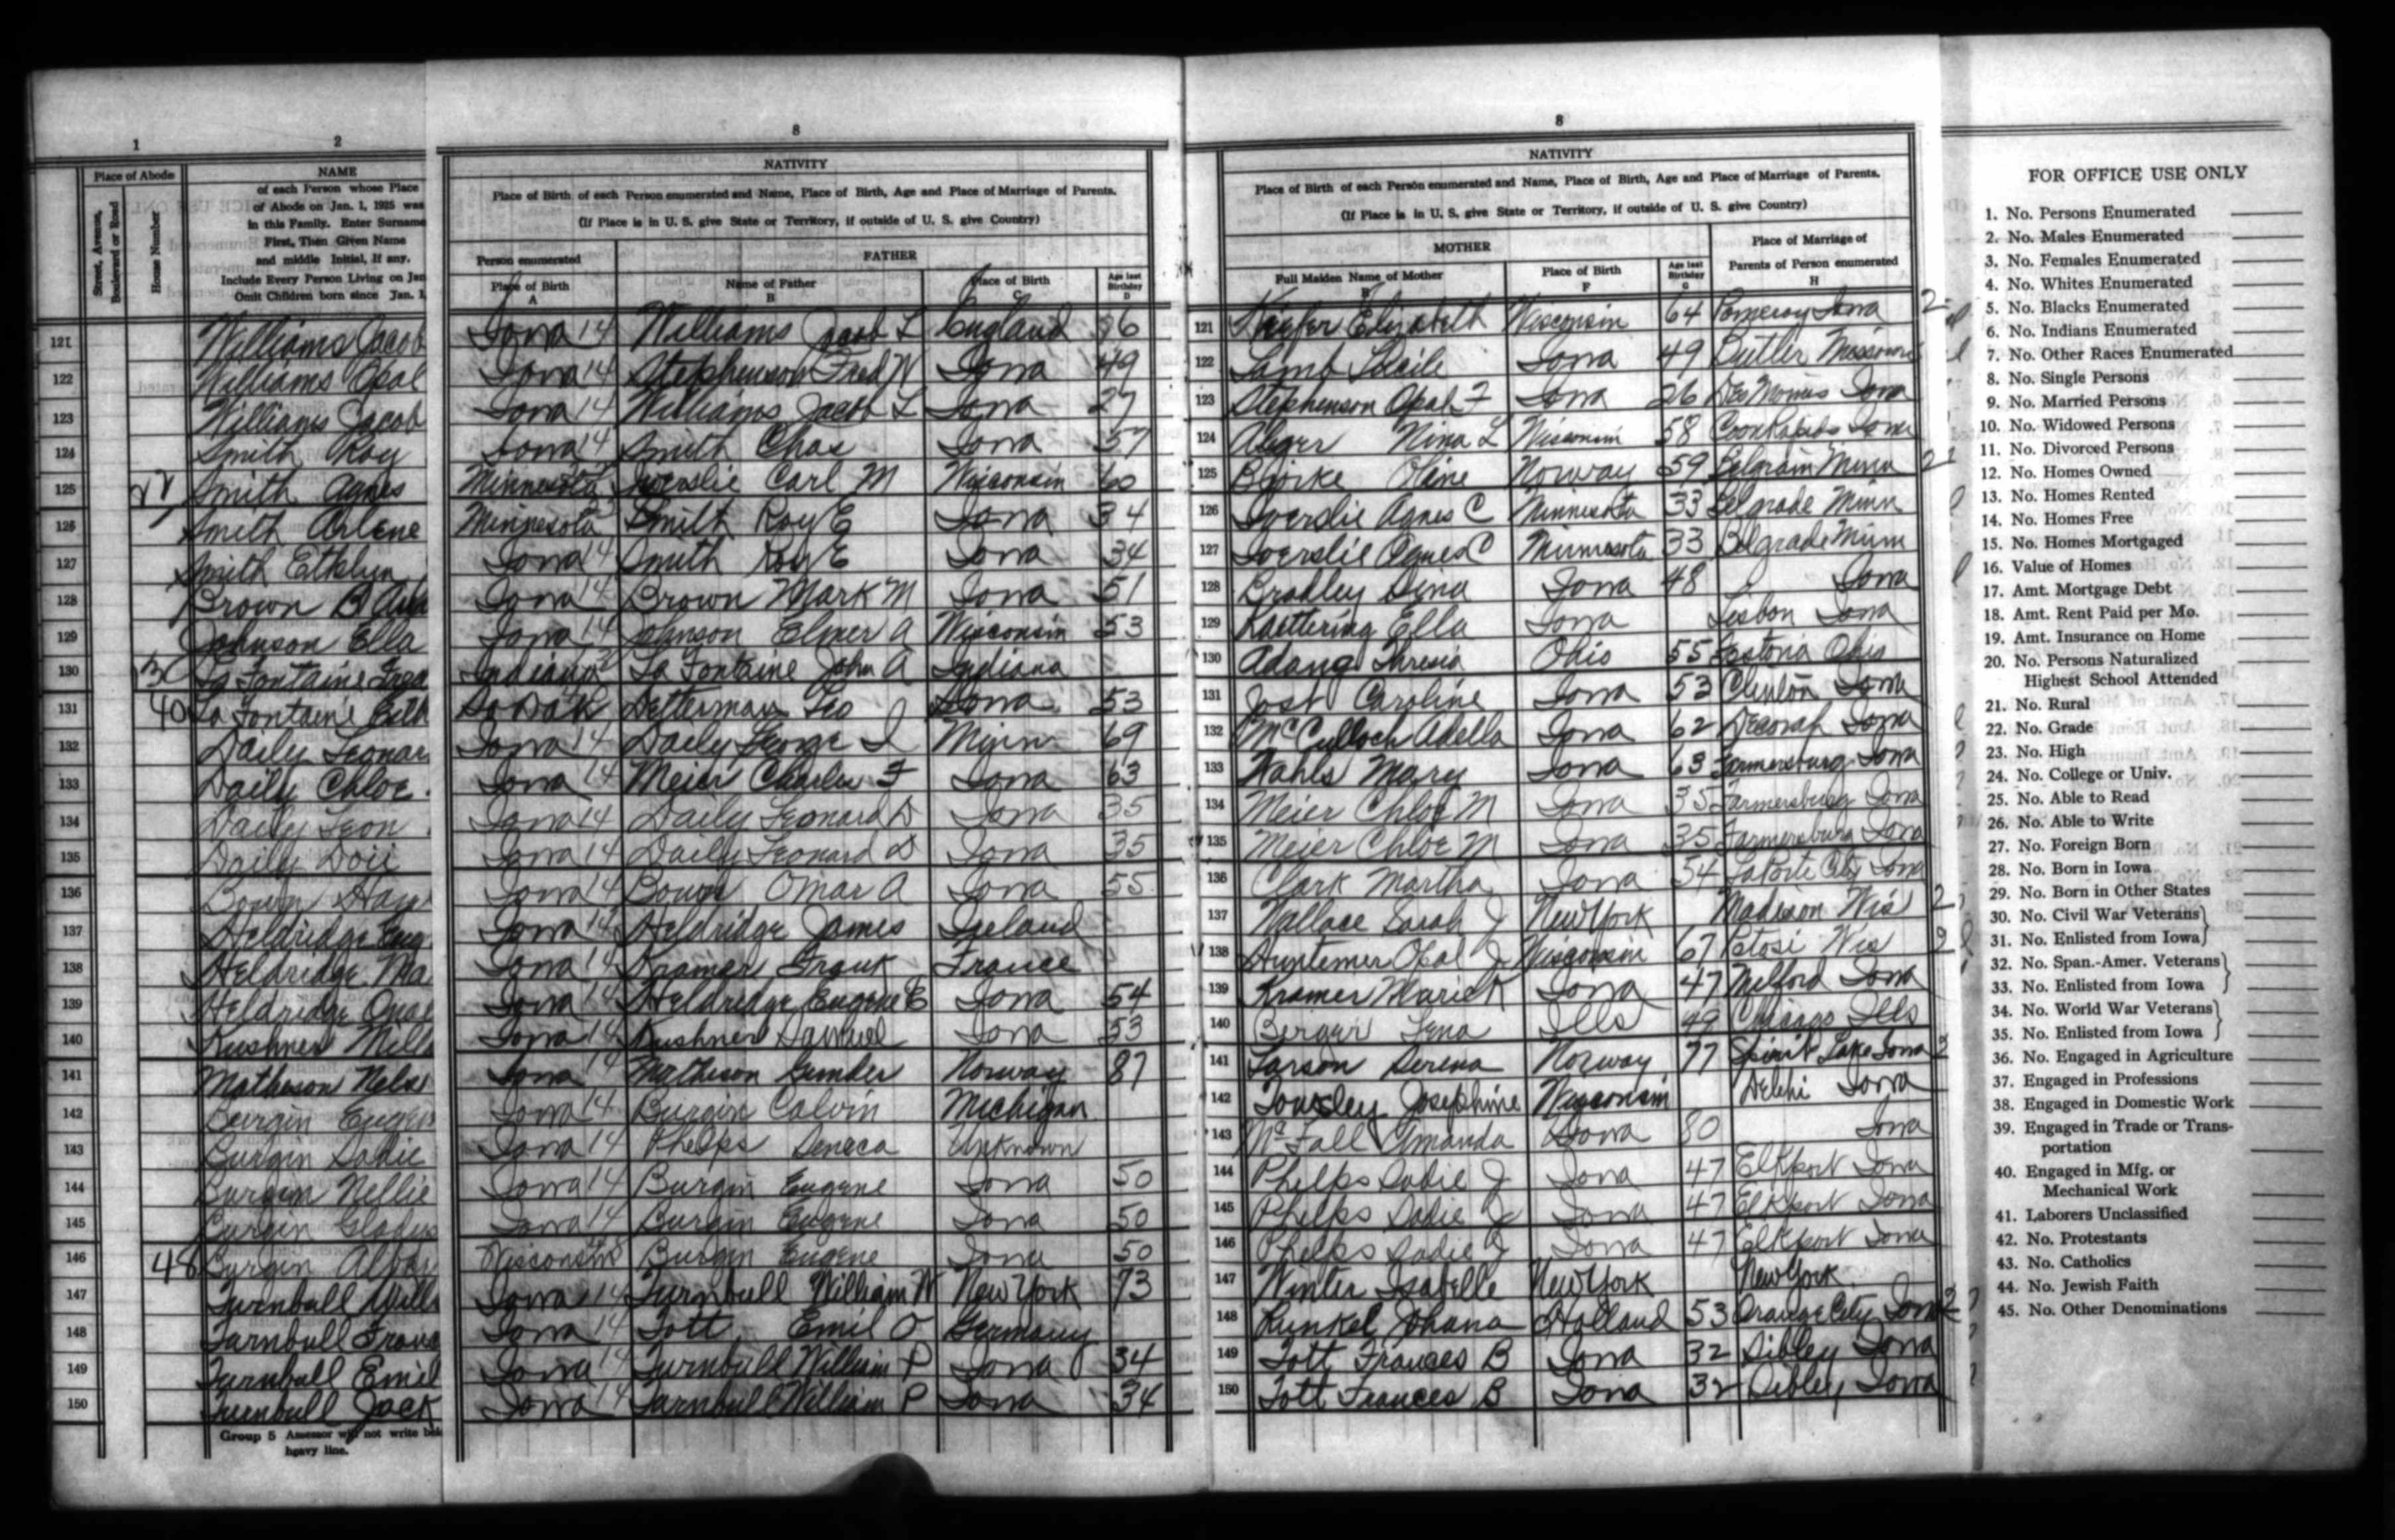 1 2 8 8
Place of Abode
Street, Avenue, Boulevard or Road
House Number
NAME
of each Person whose Place
of Abode on Jan. 1, 1925 was
in this Family. Enter Surname
First, Then Given Name
and middle Initial, if any.
Include Every Person Living on Jan
Omit Children born since Jan. 1,
NATIVITY
Place of Birth of each Person enumerated and Name, Place of Birth, Age and Place of Marriage of Parents.
(If Place is in U. S. give State or Territory, if outside of U. S. give Country)
Person enumerated
FATHER
Place of Birth
A
Name of Father
B
Place of Birth
C
Age last Birthday
D
NATIVITY
Place of Birth of each Person enumerated and Name, Place of Birth, Age and Place of Marriage of Parents.
(If Place is in U. S. give State or Territory, if outside of U. S. give Country)
MOTHER
Full Maiden Name of Mother
Place of Birth
F
Age last Birthday
G
Place of Marriage of
Parents of Person enumerated
H
121 Williams Jacob Iowa 14 Williams Jacob L England 121 Elizabeth Wisconsin 64 Pomeroy Iowa 2
122 Williams Opal Iowa 14 Stephenson Fred W Iowa 49 122 Lamb Lucile Iowa 49 Butler Missouri
123 Williams Jacob Iowa 14 Williams Jacob L Iowa 27 123 Stephenson Opal F Iowa 26 Des Moines Iowa
124 Smith Roy Iowa 14 Smith Chas Iowa 57 124 Nina L Wisconsin 58 Coon Rapids Iowa
125 Smith Agnes Minnesota Carl M Wisconsin 60 125 Oline Norway 59 Minn
126 Smith Arlene Minnesota Smith Roy E Iowa 34 126 Iverslie Agnes C Minnesota 33 Belgrade Minn
127 Smith Iowa 14 Smith Roy E Iowa 34 127 Iverslie Agnes C Minnesota 33 Belgrade Minn
128 Brown B Iowa 14 Brown Mark M Iowa 51 128 Bradley Dina Iowa 48 Iowa
129 Johnson Ella Iowa 14 Johnson Elmer A Wisconsin 53 129 Kaettering Ella Iowa Lisbon Iowa
130 La Fontaine Indiana La Fontaine John A Indiana 130 Adang Thresia Ohio 55 Ohio
131 40 La Fontaine So Dak Detterman Leo Iowa 53 131 Jost Caroline Iowa 53 Clinton Iowa
132 Daily Leonar Iowa 14 Daily George I Minn 69 132 McCulloch Adella Iowa 62 Decorah Iowa
133 Daily Chloe Iowa 14 Meier Charles F Iowa 63 133 Wahls Mary Iowa 63 Farmersburg Iowa
134 Daily Leon Iowa 14 Daily Leonard D Iowa 35 134 Meier Chloe M Iowa 35 Farmersburg Iowa
135 Daily Iowa 14 Daily Leonard D Iowa 35 135 Meier Chloe M Iowa 35 Farmersburg Iowa
136 Iowa 14 Omar A Iowa 55 136 Clark Martha Iowa 54 LaPorte City Iowa
137 Heldridge Eug Iowa 14 Heldridge James Ireland 137 Wallace Sarah J New York Madison Wis 2
138 Heldridge Ma Iowa 14 Kramer Frank France 138 Huntemer Opal J Wisconsin 67 Potosi Wis 2
139 Heldridge Iowa 14 Heldridge Eugene E Iowa 54 139 Kramer Marie K Iowa 47 Milford Iowa
140 Kushner Iowa 14 Kushner Samuel Iowa 53 140 Berger Lena Ills 49 Chicago Ills
141 Matheson Nels Iowa 14 Matheson Gunder Norway 87 141 Larson Serena Norway 77 Spirit Lake Iowa 2
142 Burgin Eugen Iowa 14 Burgin Calvin Michigan 142 Tousley Josephine Wisconsin Delphi Iowa
143 Burgin Sadie Iowa 14 Phelps Seneca Unknown 143 McFall Amanda Iowa 80 Iowa
144 Burgin Nellie Iowa 14 Burgin Eugene Iowa 50 144 Phelps Sadie J Iowa 47 Elkport Iowa
145 Burgin Gladys Iowa 14 Burgin Eugene Iowa 50 145 Phelps Sadie J Iowa 47 Elkport Iowa
146 48 Burgin Wisconsin Burgin Eugene Iowa 50 146 Phelps Sadie J Iowa 47 Elkport Iowa
147 Turnbull Willi Iowa 14 Turnbull William W New York 73 147 Winter Isabelle New York New York
148 Turnbull Franc Iowa 14 Tott Emil O Germany 148 Runkel Johana Holland 53 Orange City Iowa 2
149 Turnbull Emil Iowa 14 Turnbull William P Iowa 34 149 Tott Frances B Iowa 32 Sibley Iowa
150 Turnbull Jack Iowa 14 Turnbull William P Iowa 34 150 Tott Frances B Iowa 32 Sibley Iowa
Group 5 Assessor will not write bel
heavy line.
FOR OFFICE USE ONLY
1. No. Persons Enumerated
2. No. Males Enumerated
3. No. Females Enumerated
4. No. Whites Enumerated
5. No. Blacks Enumerated
6. No. Indians Enumerated
7. No. Other Races Enumerated
8. No. Single Persons
9. No. Married Persons
10. No. Widowed Persons
11. No. Divorced Persons
12. No. Homes Owned
13. No. Homes Rented
14. No. Homes Free
15. No. Homes Mortgaged
16. Value of Homes
17. Amt. Mortgage Debt
18. Amt. Rent Paid per Mo.
19. Amt. Insurance on Home
20. No. Persons Naturalized
Highest School Attended
21. No. Rural
22. No. Grade
23. No. High
24. No. College or Univ.
25. No. Able to Read
26. No. Able to Write
27. No. Foreign Born
28. No. Born in Iowa
29. No. Born in Other States
30. No. Civil War Veterans
31. No. Enlisted from Iowa
32. No. Span.-Amer. Veterans
33. No. Enlisted from Iowa
34. No. World War Veterans
35. No. Enlisted from Iowa
36. No. Engaged in Agriculture
37. Engaged in Professions
38. Engaged in Domestic Work
39. Engaged in Trade or Trans-
portation
40. Engaged in Mfg. or
Mechanical Work
41. Laborers Unclassified
42. No. Protestants
43. No. Catholics
44. No. Jewish Faith
45. No. Other Denominations